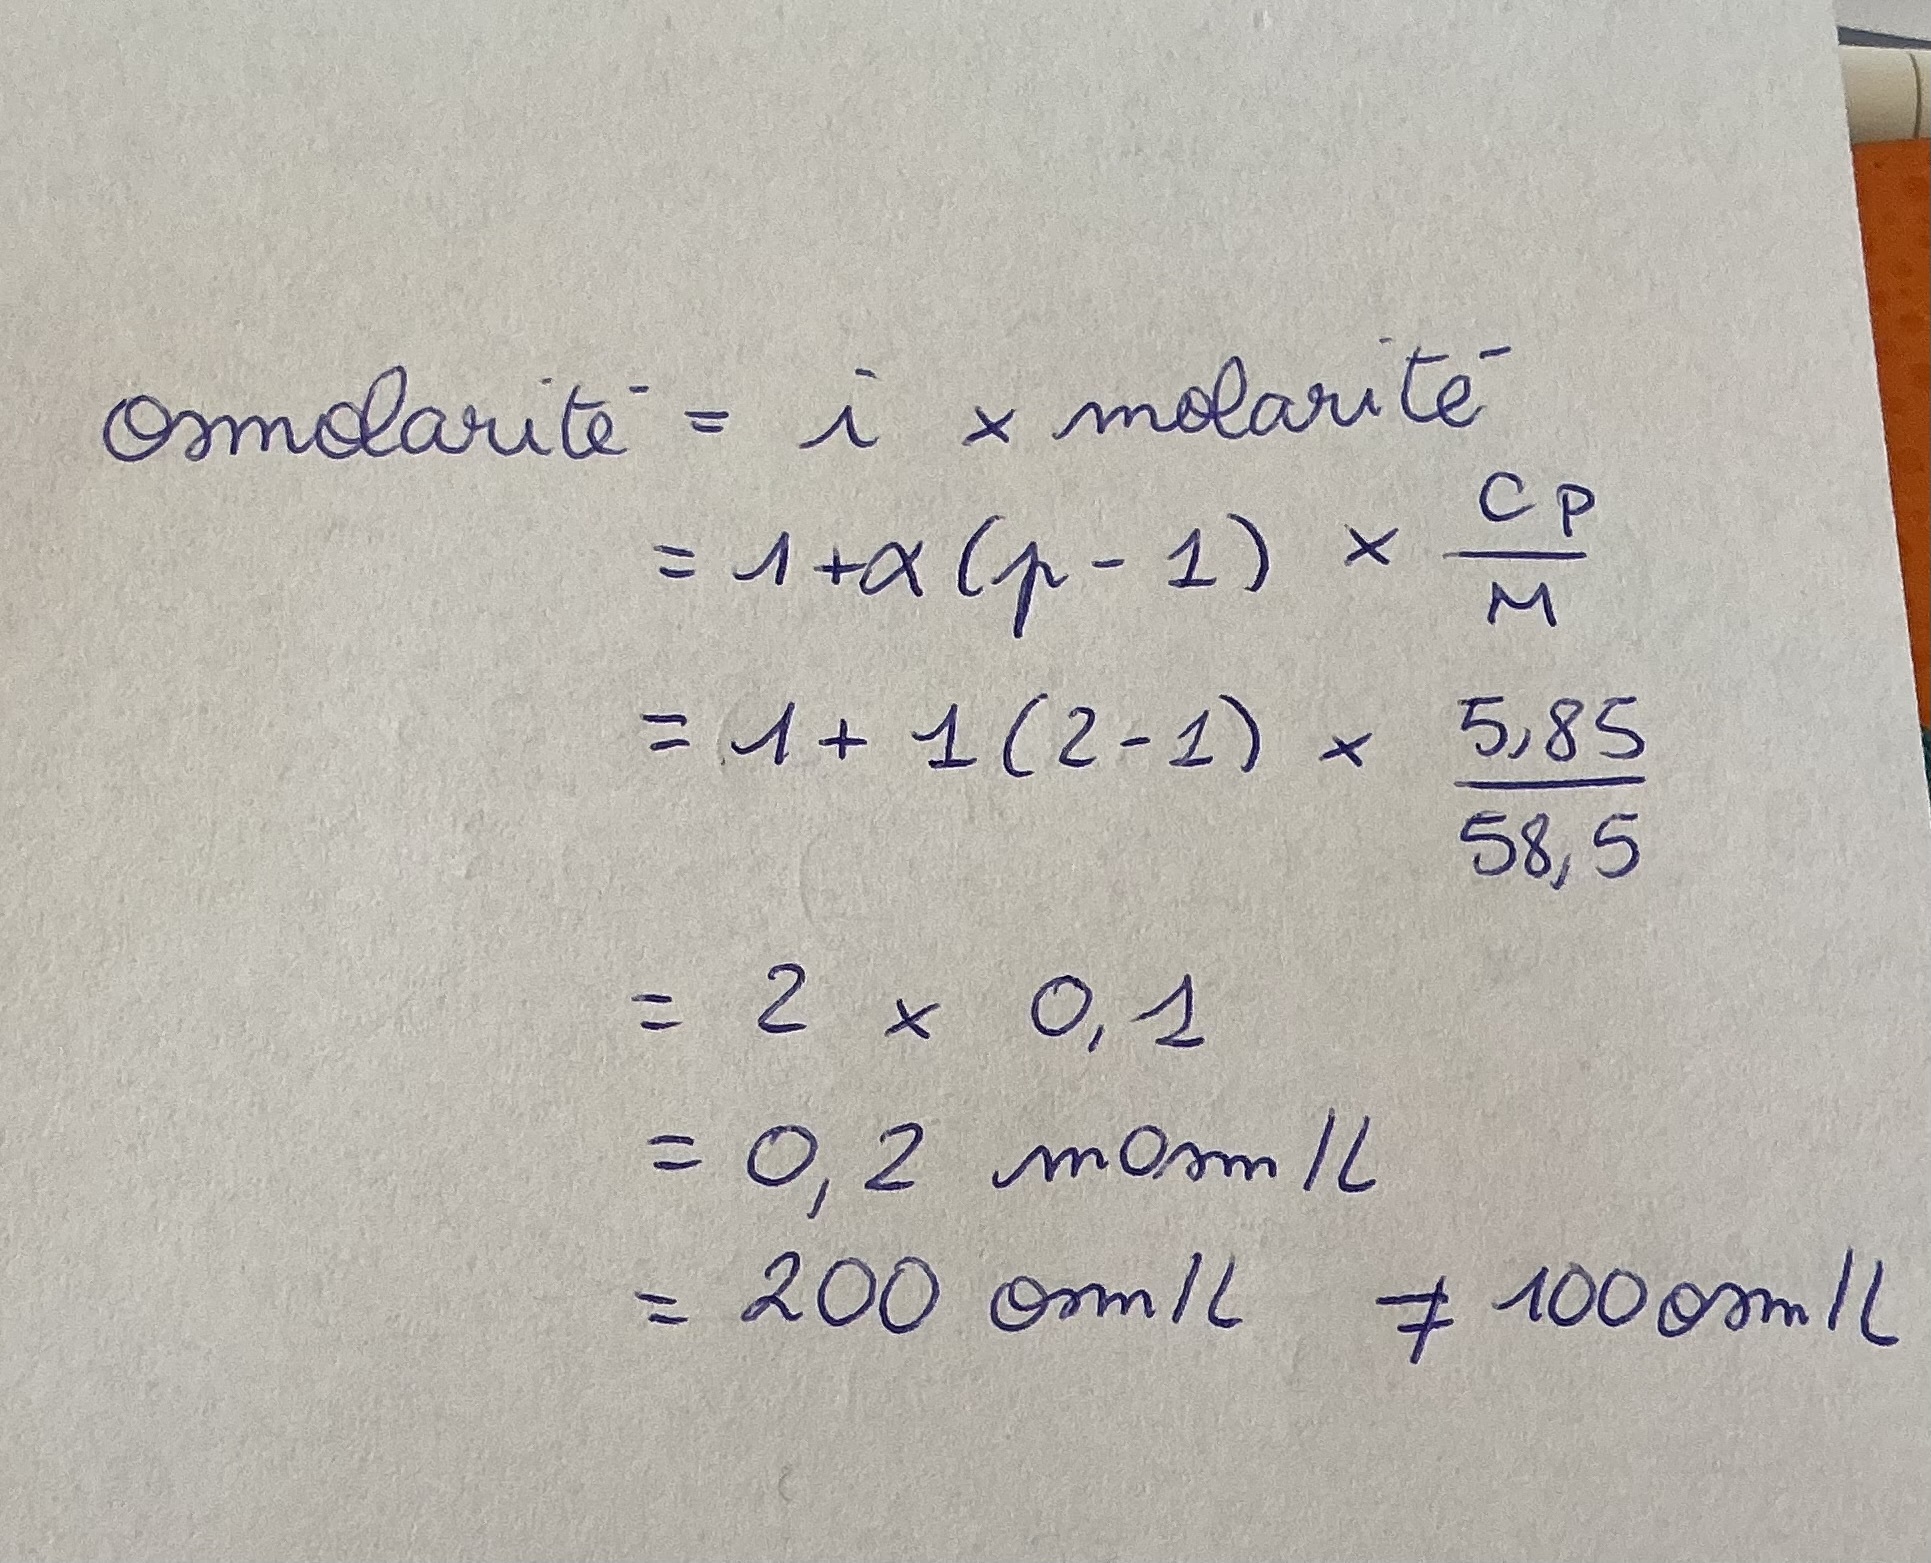 osmolarité = i × molarité
= 1 + α (p - 1) × Cp / M
= 1 + 1 (2 - 1) × 5,85 / 58,5
= 2 × 0,1
= 0,2 mosm/L
= 200 osm/L ≠ 100 osm/L